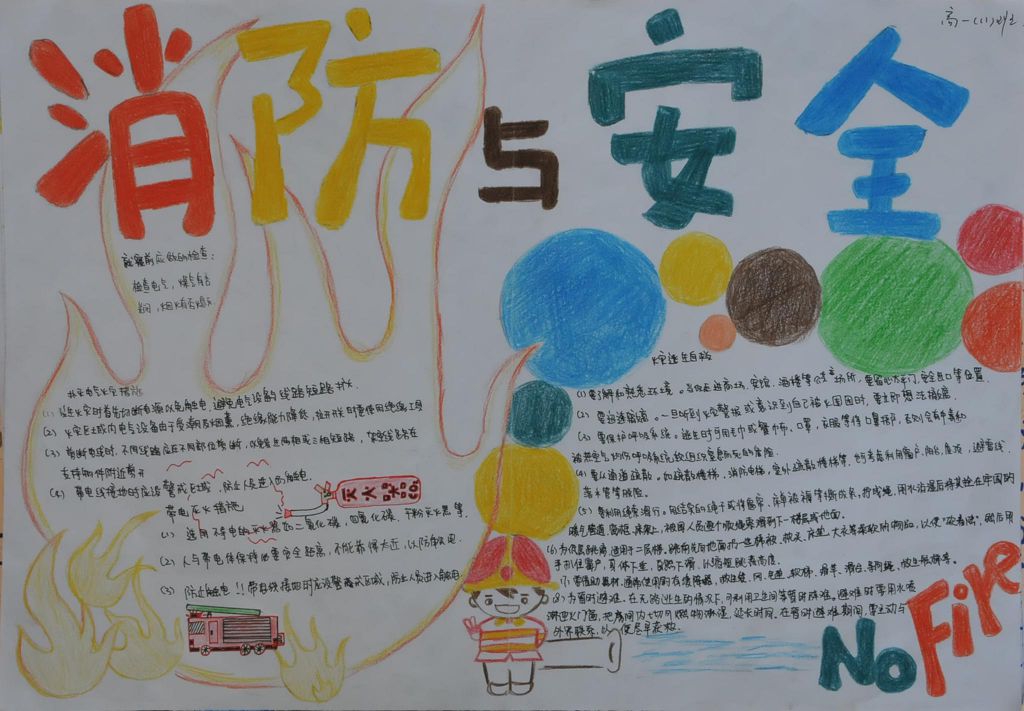 高一(1)班
消防与安全
就寝前应做的检查:
检查电气,燃气有否
关闭,烟火有否熄灭
扑灭电气火灾措施
(1) 发生火灾时首先切断电源以免触电,避免电气设备的线路短路扩大.
(2) 火灾区域内电气设备由于受潮及烟熏,绝缘能力降低,拉开关时要使用绝缘工具
(3) 剪断电线时,不同线路应在不同部位剪断,以免造成两相或三相短路,
支持物件附近剪开
(4) 带电线接地时应设警戒区域,防止人员进入而触电.
带电灭火措施
(1) 选用不导电的灭火器如二氧化碳,四氯化碳,干粉灭火器等.
(2) 人与带电体保持必要安全距离,不能靠得太近,以防触电.
(3) 防止触电 1) 带电线接地时应设警戒区域,防止人员进入触电
灭火器 CO₂
火灾逃生自救
(1) 要了解和熟悉环境。当你走进商场、宾馆、酒楼等公共场所,要留心太平门、安全出口等位置.
(2) 要迅速撤离。一旦听到火灾警报或意识到自己被火围困时,要立即想法撤离.
(3) 要保护呼吸系统。逃生时可用毛巾或餐巾布、口罩、衣服等将口鼻捂护,否则会有中毒和
被热空气灼伤呼吸系统软组织窒息致死的危险.
(4) 要从通道疏散。如疏散楼梯、消防电梯、室外疏散楼梯等。也可考虑利用窗户、阳台、屋顶、避雷线、
落水管等脱险.
(5) 要利用绳索滑行。用结实的绳子或将窗帘、床单被褥等撕成条,拧成绳,用水沾湿后将其拴在牢固的
暖气管道、窗框、床架上,被困人员逐个顺绳索滑到下一楼层或地面.
(6) 为低层跳离,适用于二层楼。跳前先向地面扔一些棉被、枕头、床垫、大衣等柔软的物品,以便"软着陆",然后用
手扒住窗户,身体下垂,自然下滑,以缩短跳落高度.
(7) 要借助器材。通常使用的有缓降器、救生袋、网、气垫、软梯、滑竿、滑台、导向绳、救生舷梯等.
(8) 为暂时避难。在无路逃生的情况下,可利用卫生间等暂时避难。避难时要用水喷
淋迎火门窗,把房间内一切可燃物淋湿,延长时间。在暂时避难期间,要主动与
外界联系,以便尽早获救.
No Fire